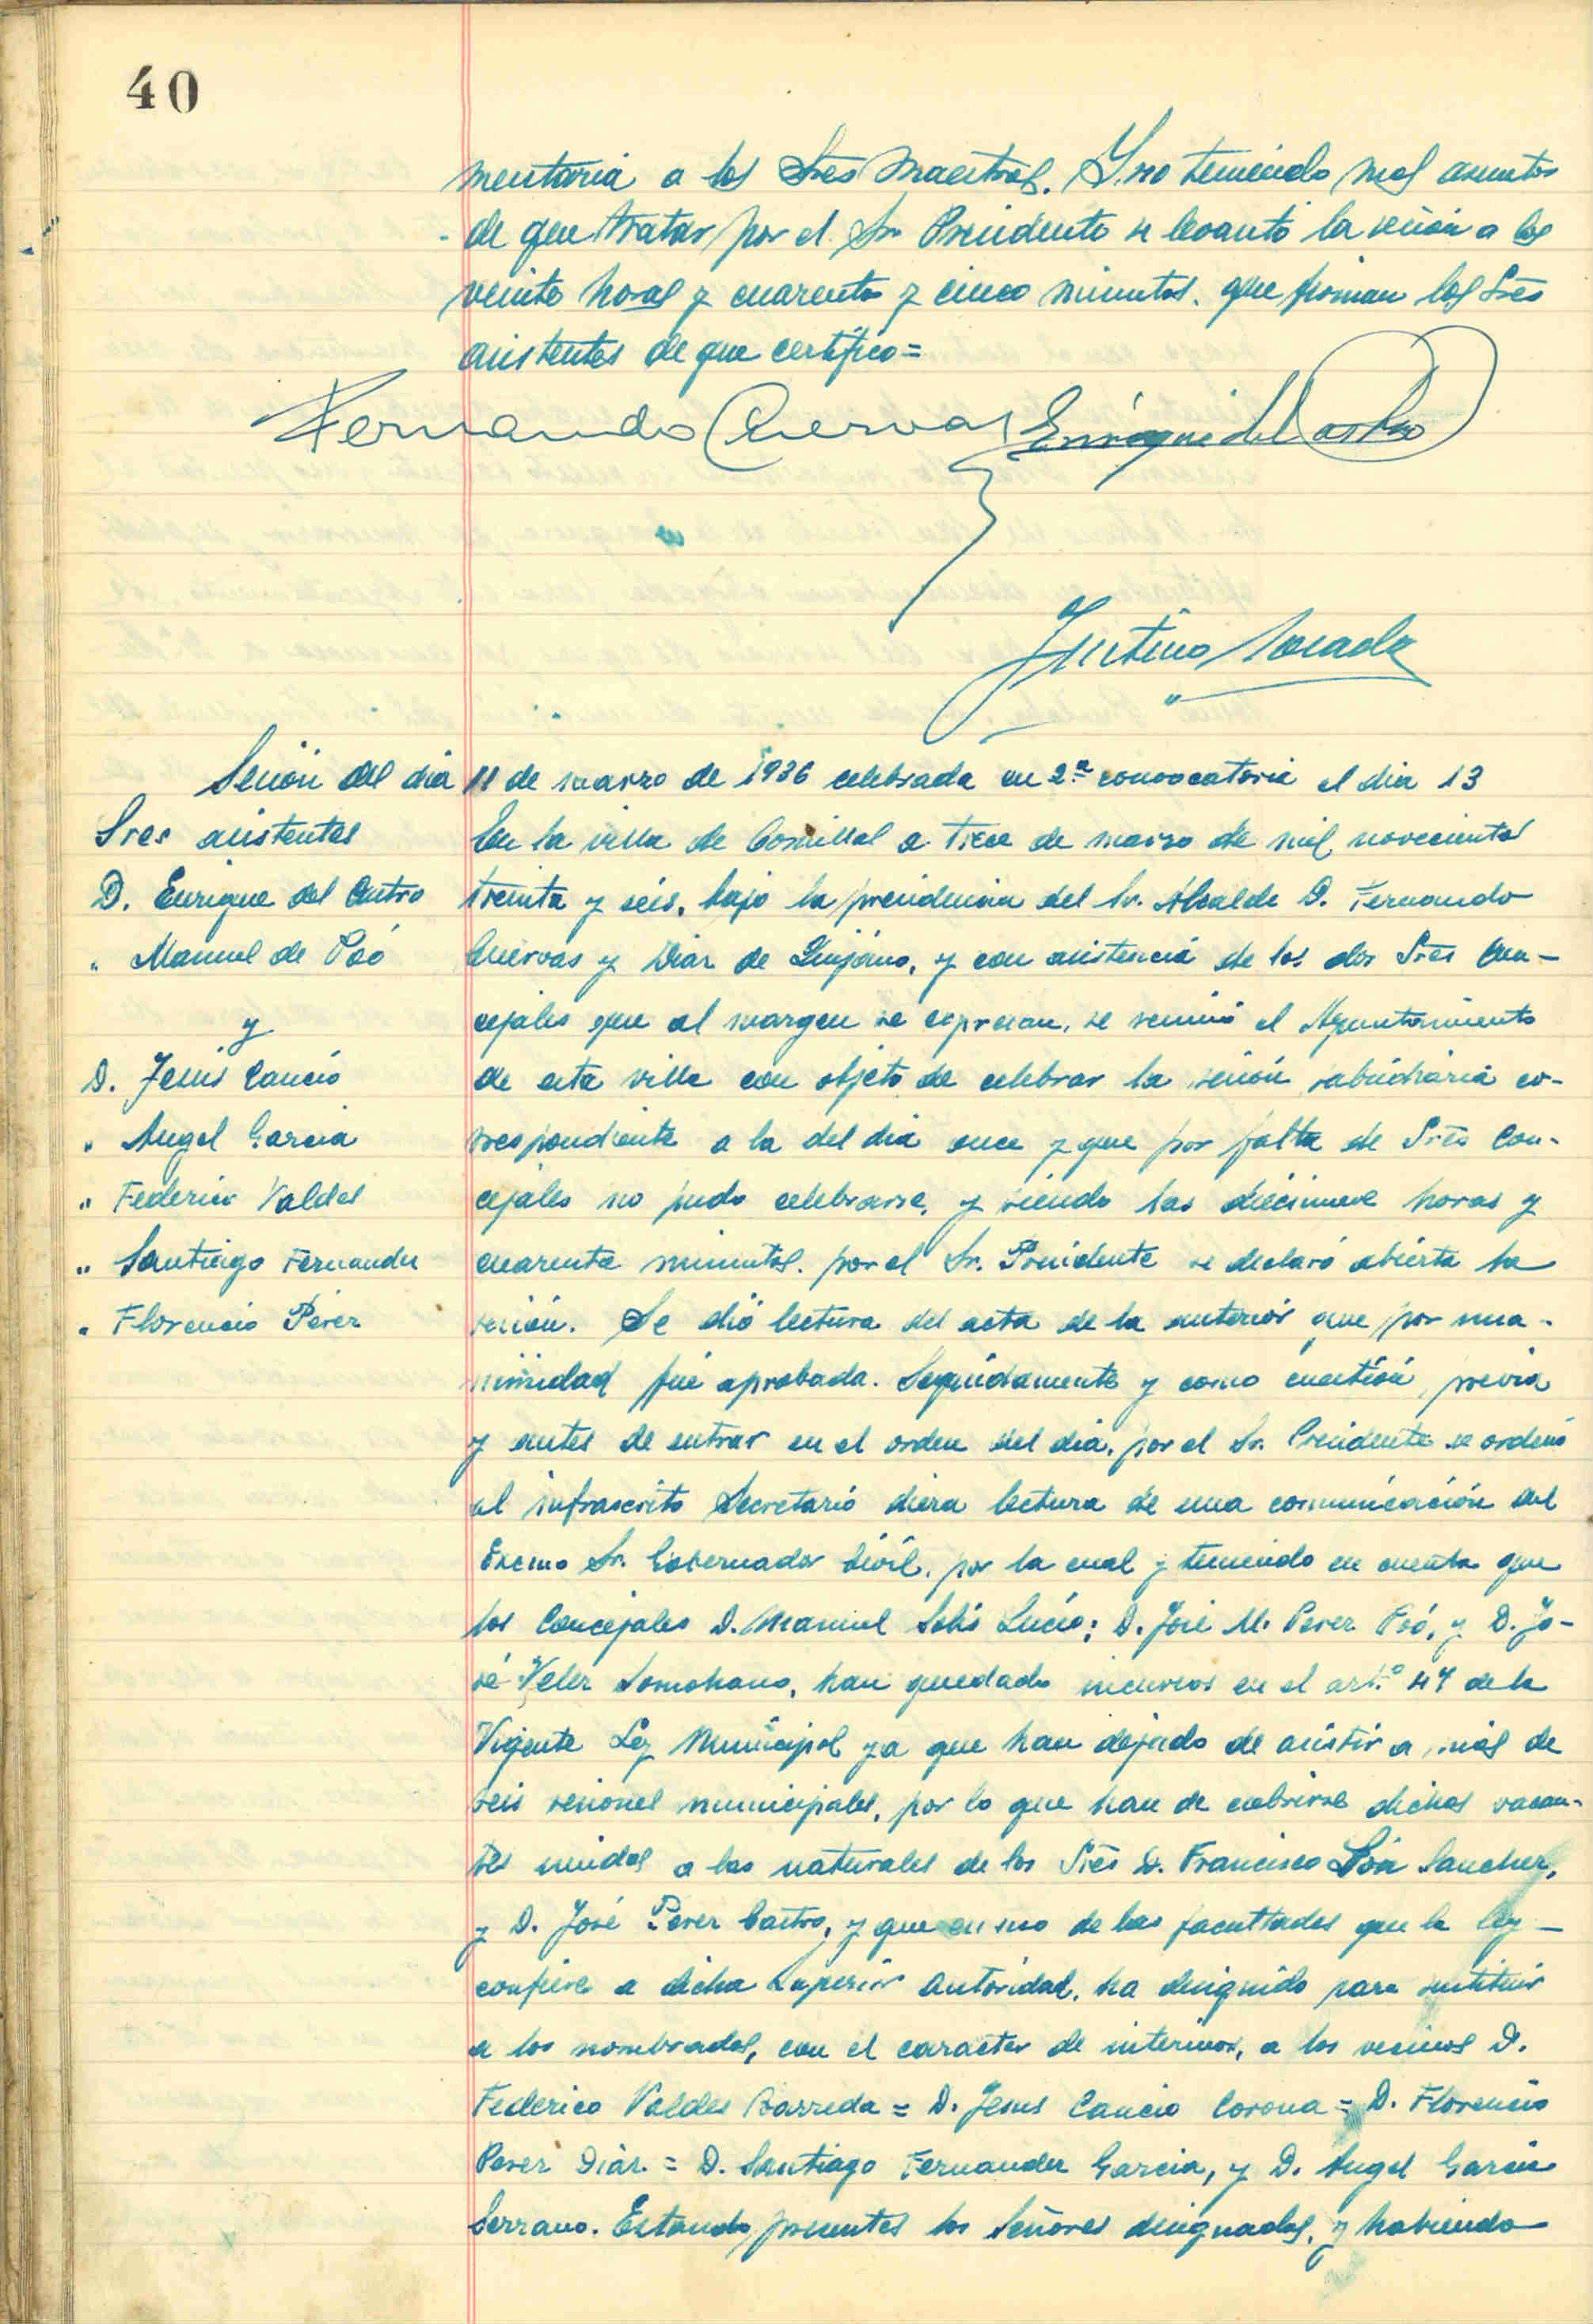 40
mentaria a los Sres Maestros. Y no teniendo mas asuntos
de que tratar por el Sr. Presidente se levantó la sesión a las
veinte horas y cuarenta y cinco minutos. que firman los Sres
asistentes de que certifico=
Fernando Cuervas Enrique del Castro
Justino
Sesión del dia 11 de marzo de 1936 celebrada en 2ª convocatoria el dia 13
Sres asistentes
D. Enrique del Castro
" Manuel de Poó
y
D. Jesús Cancio
" Angel Garcia
" Federico Valdes
" Santiago Fernandez
" Florencio Pérez
En la villa de Comillas a trece de marzo de mil novecientos
treinta y seis, bajo la presidencia del Sr. Alcalde D. Fernando
Cuervas y Diaz de Quijano, y con asistencia de los dos Sres Con-
cejales que al margen se expresan, se reunió el Ayuntamiento
de esta villa con objeto de celebrar la sesión subsidiaria co-
rrespondiente a la del dia once y que por falta de Sres Con-
cejales no pudo celebrarse, y siendo las diecinueve horas y
cuarenta minutos. por el Sr. Presidente se declaró abierta la
sesión. Se dió lectura del acta de la anterior que por una-
nimidad fué aprobada. Seguidamente y como cuestión previa
y antes de entrar en el orden del dia, por el Sr. Presidente se ordenó
al infrascrito Secretario diera lectura de una comunicación del
Excmo Sr. Gobernador Civil, por la cual y teniendo en cuenta que
los Concejales D. Manuel Solis Lucio; D. José M. Perez Poó, y D. Jo-
sé Velez Somohano, han quedado incursos en el artº 47 de la
Vigente Ley Municipal ya que han dejado de asistir a más de
seis sesiones municipales, por lo que han de cubrirse dichas vacan-
tes unidas a las naturales de los Sres D. Francisco Sanchez,
y D. José Perez Castro, y que en uso de las facultades que la ley
confiere a dicha Superior Autoridad, ha designido para sustituir
a los nombrados, con el caracter de interinos, a los vecinos D.
Federico Valdes Barreda = D. Jesus Cancio Corona = D. Florencio
Perez Diáz = D. Santiago Fernandez Garcia, y D. Angel Garcia
Serrano. Estando presentes los Señores designados, y habiendo